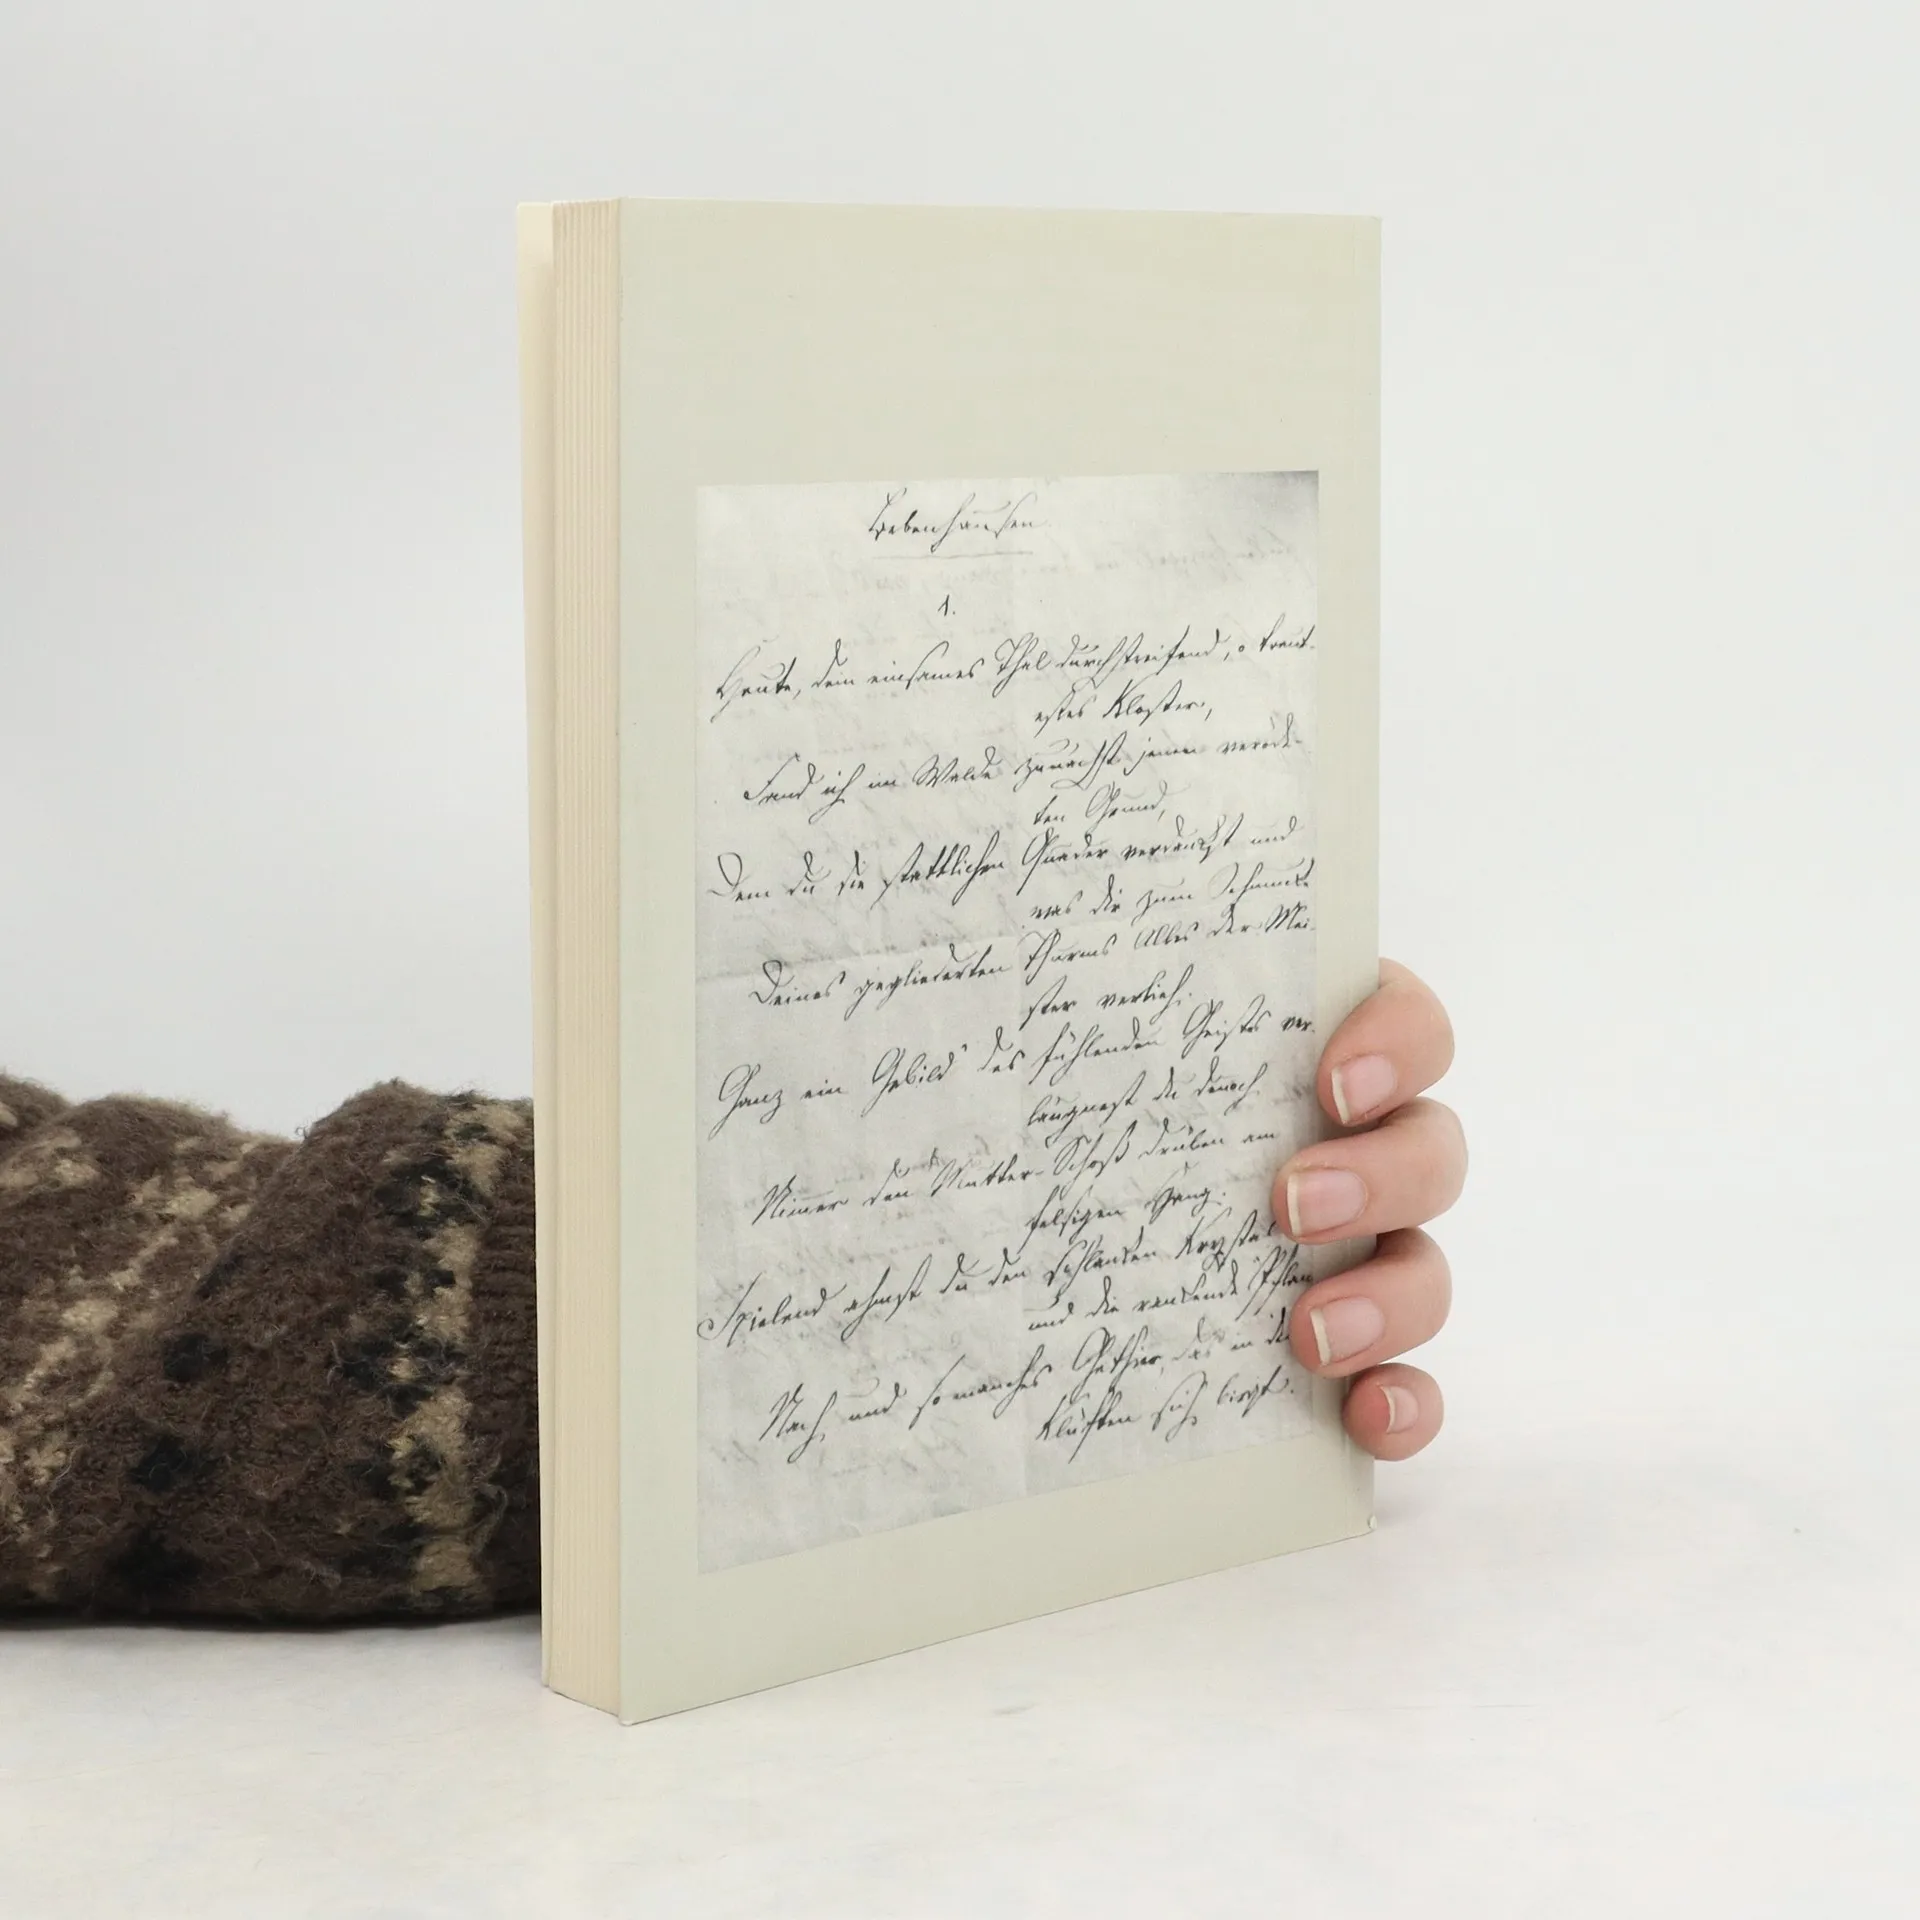 Bebenhausen
1.
Heute, dein einsames Thal durchstreifend, o traut-
estes Kloster,
Fand ich im Walde zunächst jenen veröde-
ten Grund,
Dem du die stattlichen Quader verdankst und
was dir zum Schmucke
Deines gegliederten Thurms Alles der Mei-
ster verlieh.
Ganz ein Gebild' des fühlenden Geistes ver-
läugnest du dennoch
Nimmer den Mutter-Schoß drüben am
felsigen Hang.
Spielend ahmst du den schlanken Krystall
und die rankende Pflan
Nach, und so manches Gethier, das in den
Klüften sich birgt.